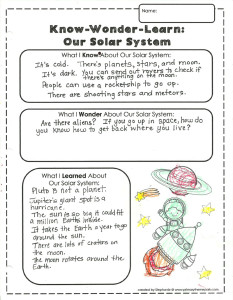 Name:
Know-Wonder-Learn:
Our Solar System
What I Know About Our Solar System:
It's cold. There's planets, stars, and moon.
It's dark. You can send out rovers to check if
there's anything on the moon.
People can use a rocketship to go up.
There are shooting stars and meteors.
What I Wonder About Our Solar System:
Are there aliens? If you go up in space, how do
you know how to get back where you live?
What I Learned About
Our Solar System:
Pluto is not a planet!
Jupiter's giant spot is a
hurricane.
The sun is so big it could fit
a million Earths inside.
It takes the Earth a year to go
around the sun.
There are lots of craters on
the moon.
The moon rotates around the
Earth.